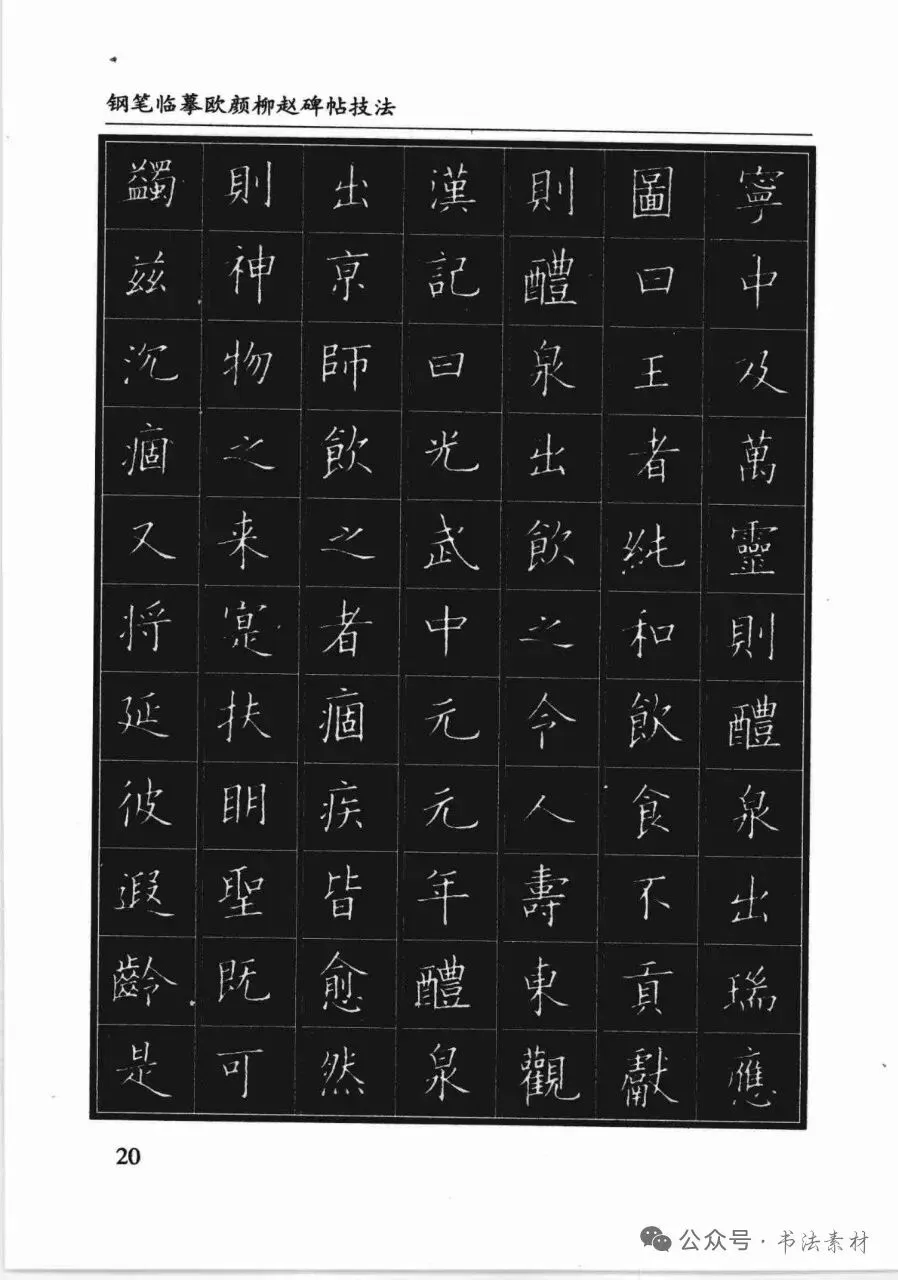 钢笔临摹欧颜柳赵碑帖技法
寧中及萬靈則醴泉出瑞應
圖曰王者純和飲食不貢獻
則醴泉出飲之令人壽東觀
漢記曰光武中元元年醴泉
出京師飲之者痼疾皆愈然
則神物之来寔扶明聖既可
蠲兹沉痼又将延彼遐齡是
20
公众号·书法素材